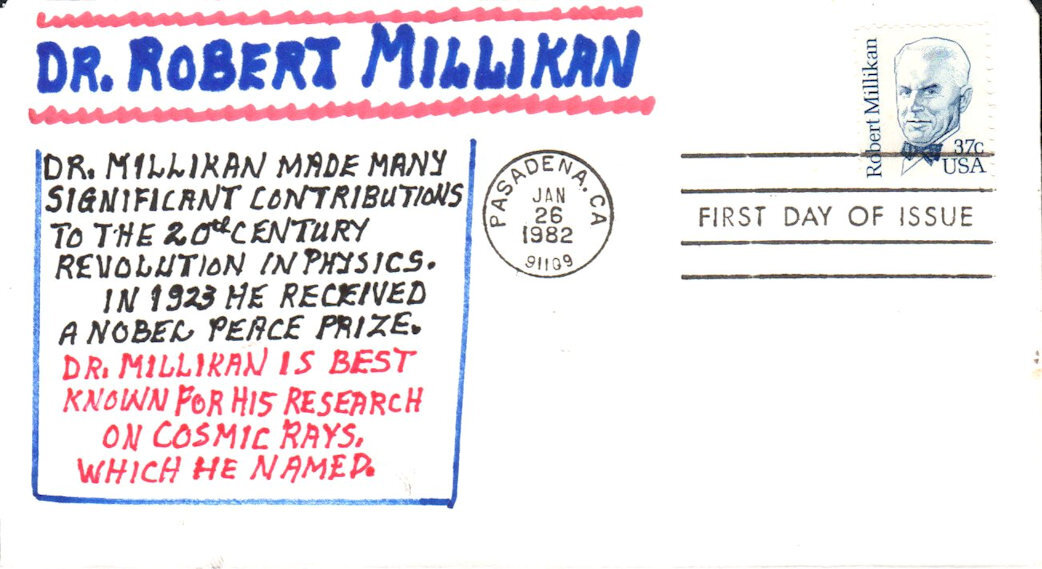 DR. ROBERT MILLIKAN
DR. MILLIKAN MADE MANY
SIGNIFICANT CONTRIBUTIONS
TO THE 20th CENTURY
REVOLUTION IN PHYSICS.
IN 1923 HE RECEIVED
A NOBEL PEACE PRIZE.
DR. MILLIKAN IS BEST
KNOWN FOR HIS RESEARCH
ON COSMIC RAYS,
WHICH HE NAMED.
PASADENA, CA
JAN
26
1982
91109
Robert Millikan
37c
USA
FIRST DAY OF ISSUE